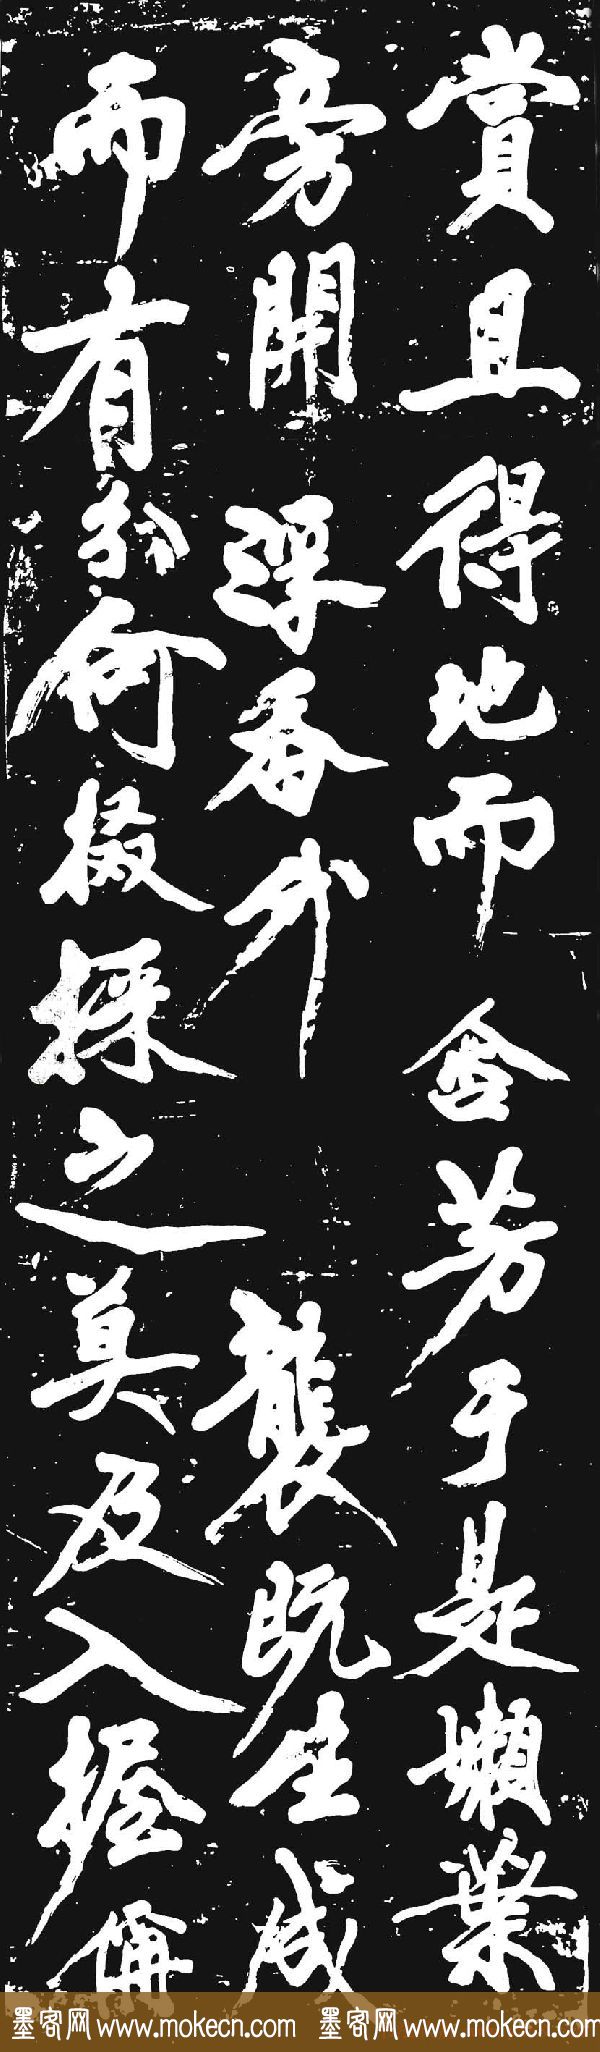 賞且得地而含芳于是嬾葉
旁開浮香外襲既生成
而有分何掇採之莫及入握稱
墨客网 www.mokecn.com 墨客网 www.mokecn.com